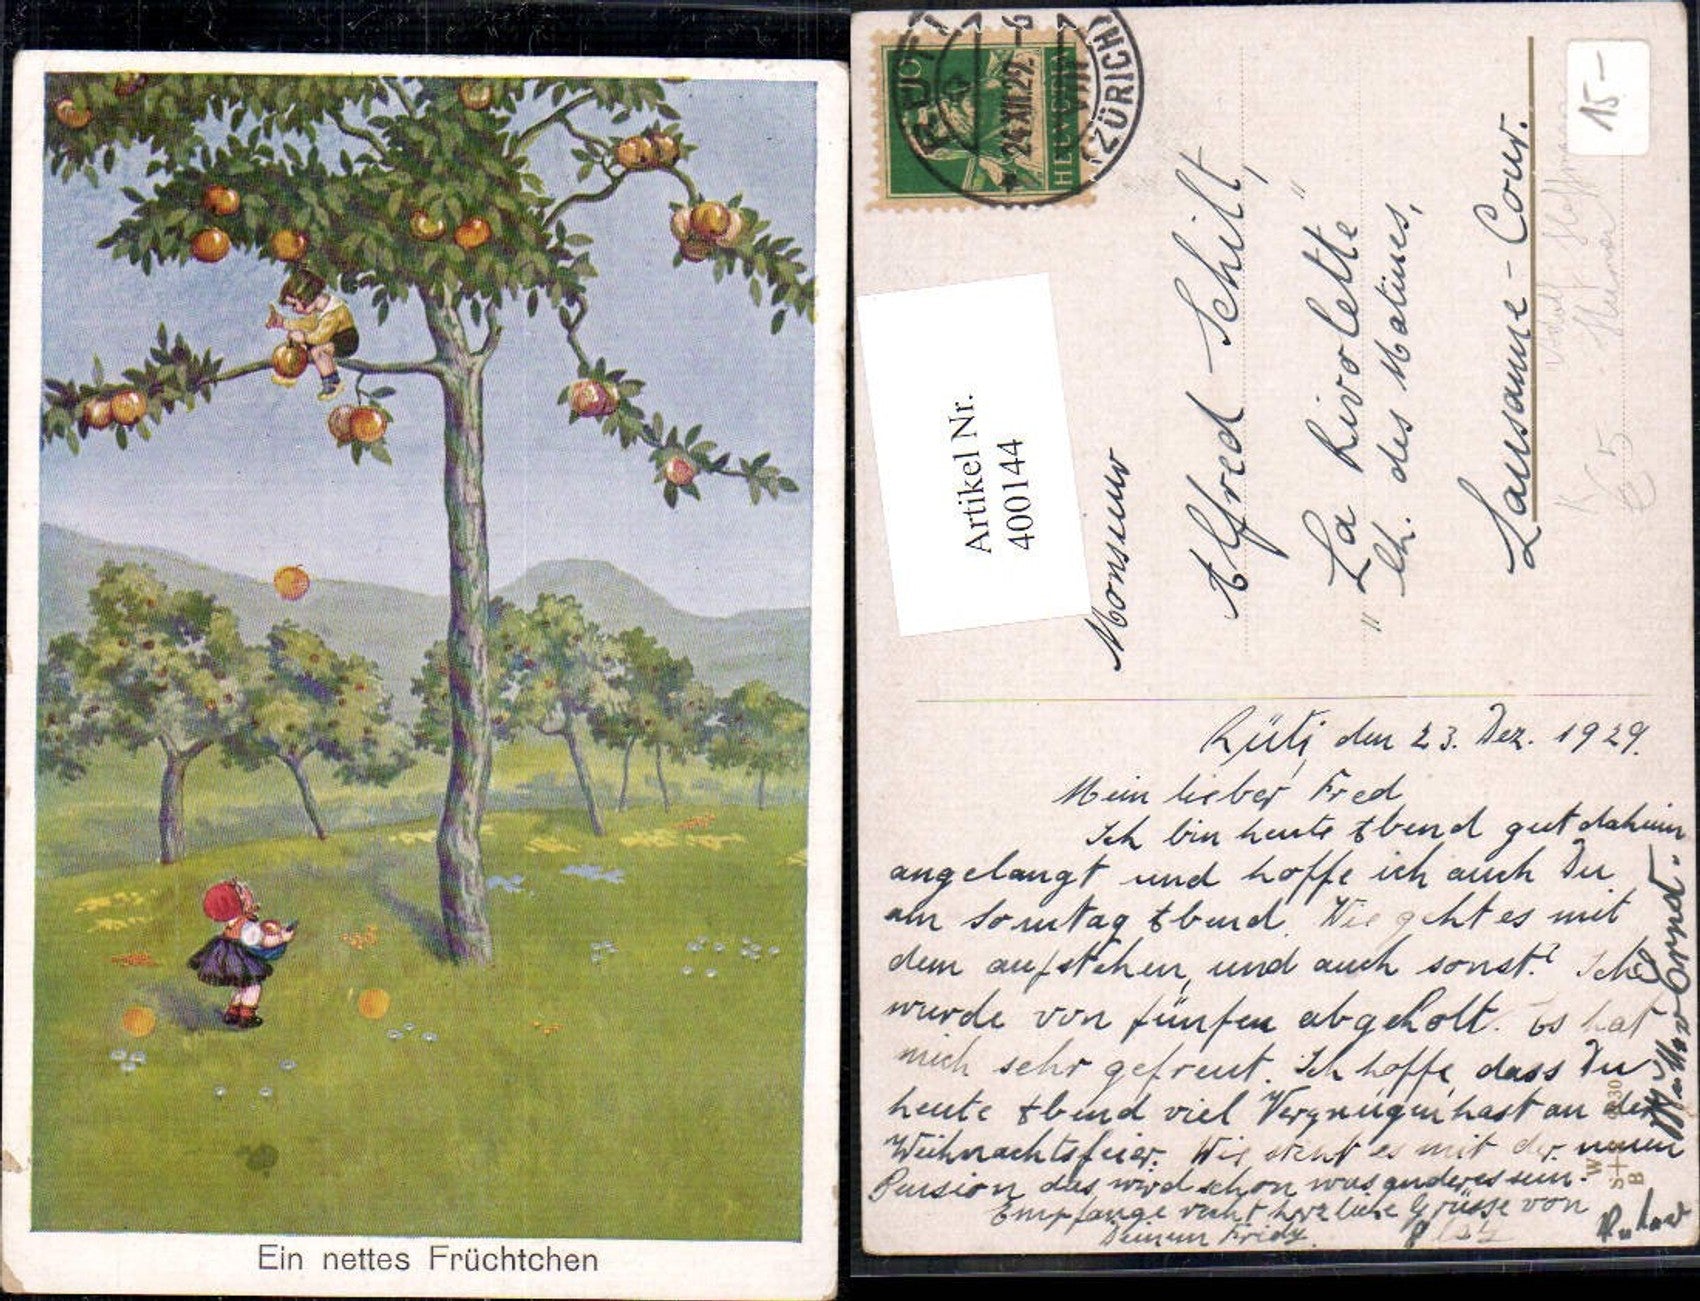 Ein nettes Früchtchen
RÜTI
24.XII.29.
VIII
(ZÜRICH)
HELVETIA
15.-
Artikel Nr.
400144
Monsieur
Alfred Schilt,
"La Rivolette"
Ch. des Matines,
Lausanne-Cour.
K
€ 5
Rüti, den 23. Dez. 1929.
Mein lieber Fred
Ich bin heute Abend gut daheim
angelangt und hoffe ich auch Du
am Sonntag Abend. Wie geht es mit
dem aufstehen, und auch sonst? Ich
wurde von fünfen abgeholt. Es hat
mich sehr gefreut. Ich hoffe, dass Du
heute Abend viel Vergnügen hast an der
Weihnachtsfeier. Wie steht es mit der neuen
Pension, das wird schon was anderes sein.
Empfange recht herzliche Grüsse von
Deinem Fridy.
W
S+S
B